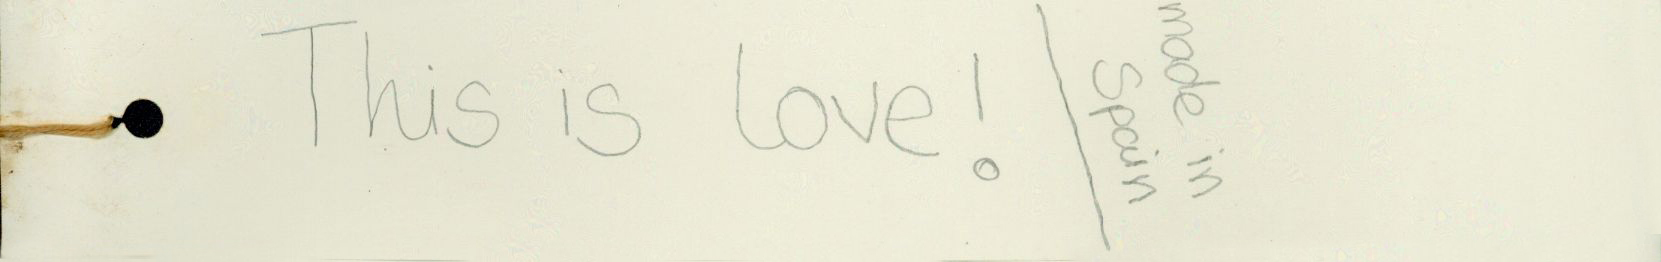 This is love!
made in
Spain